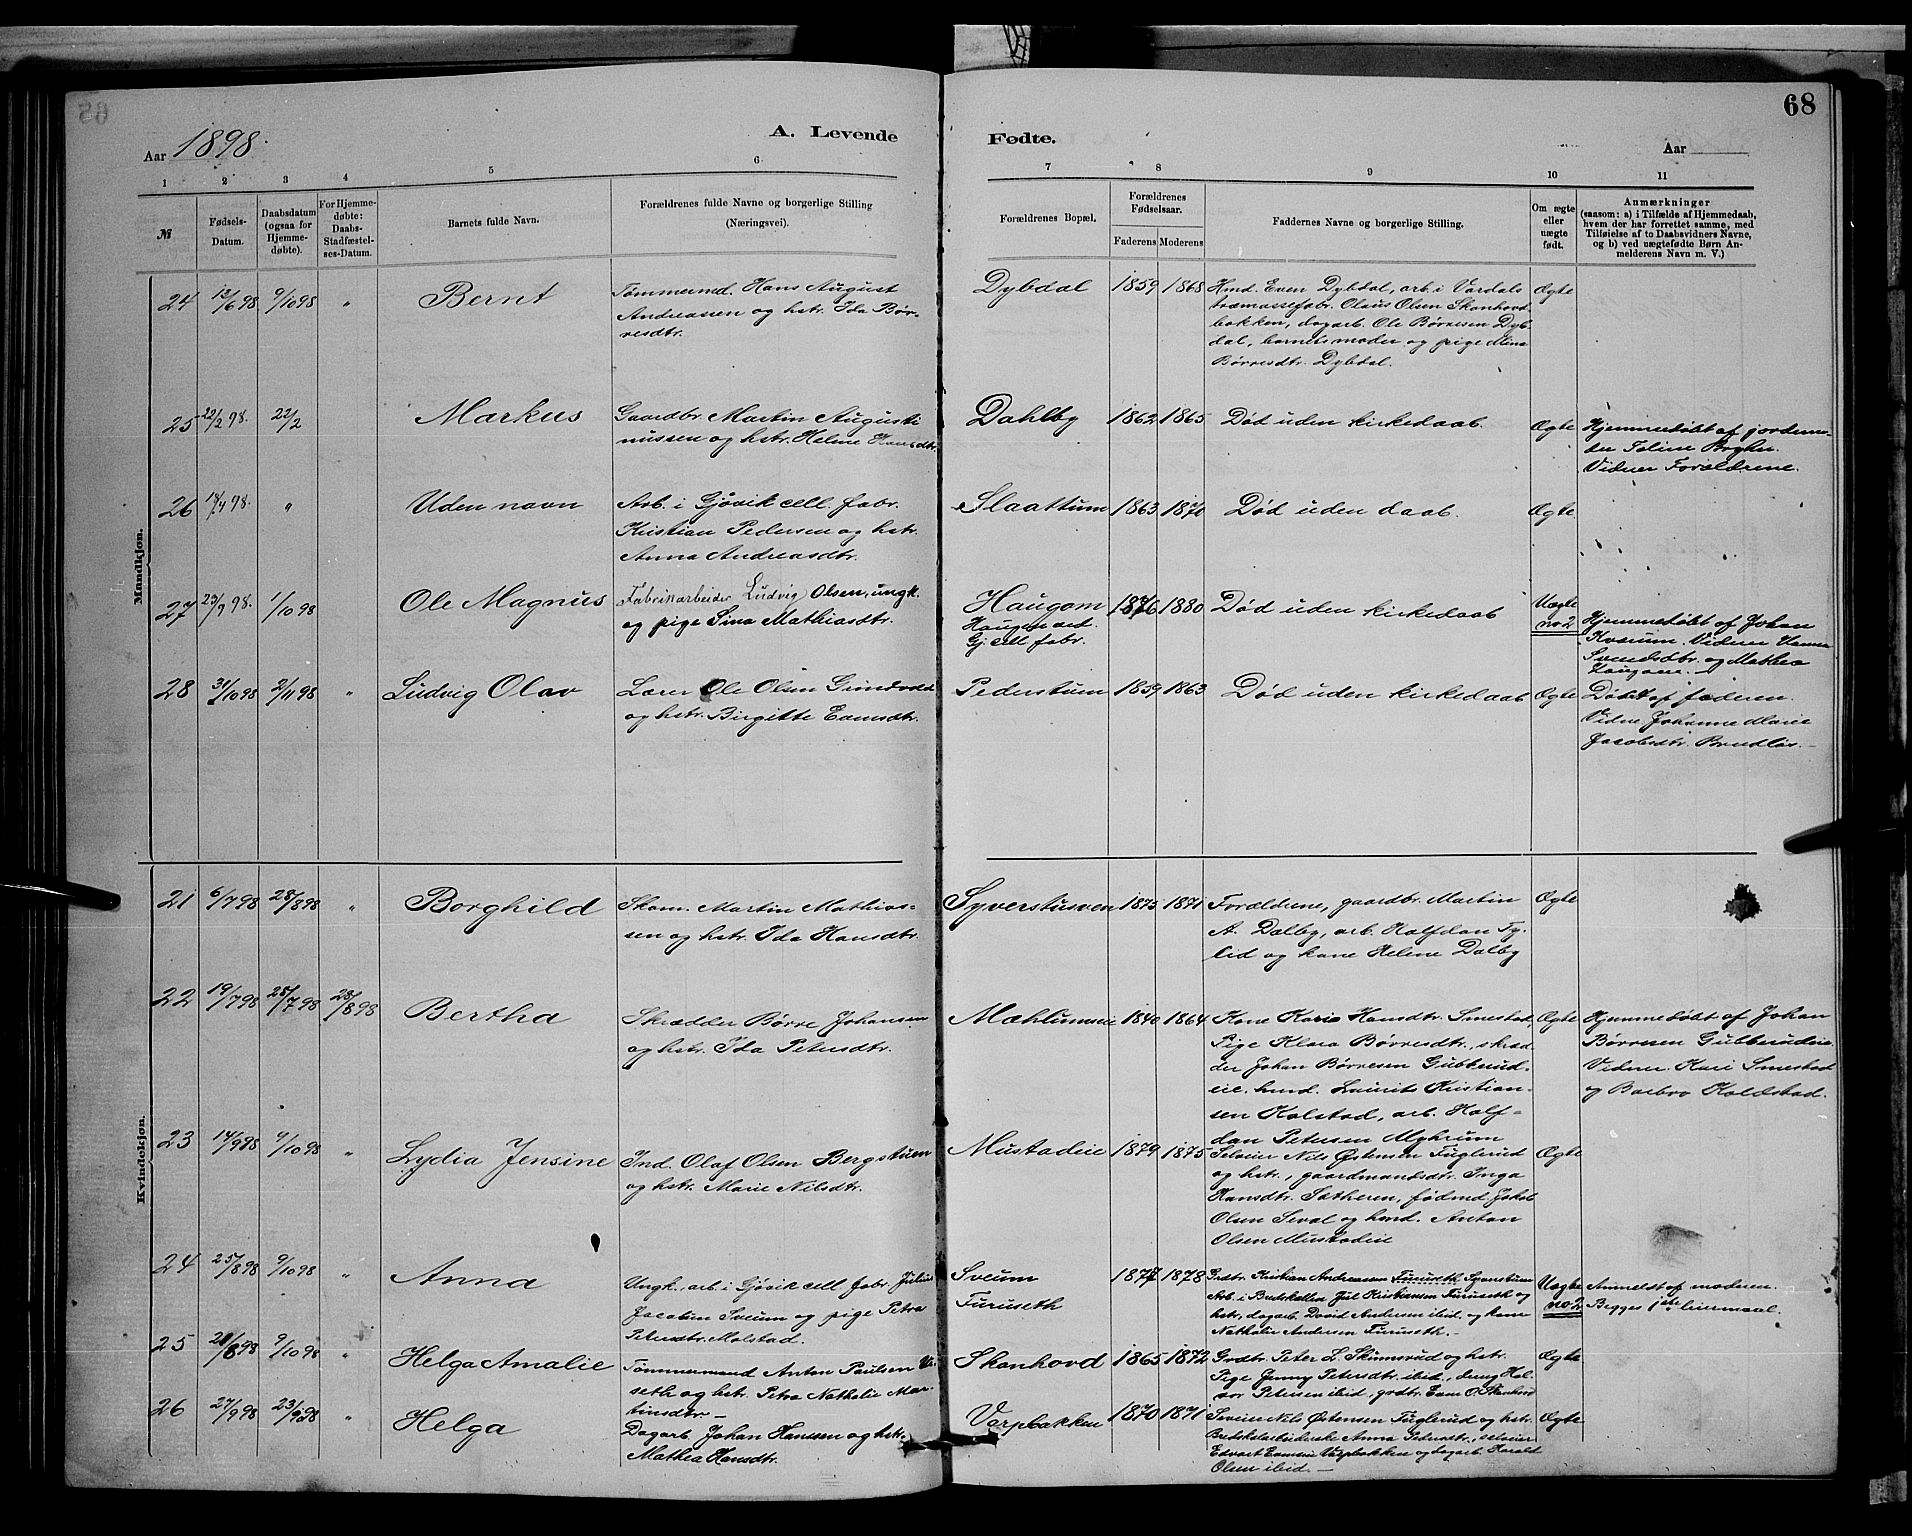 68
Aar 1898.
A. Levende
Fødte.
Aar
1
2
3
4
5
6
7
8
9
10
11
№
Fødsels-
Datum.
Daabsdatum
(ogsaa for
Hjemme-
døbte).
For Hjemme-
døbte:
Daabs-
Stadfæstel-
ses-Datum.
Barnets fulde Navn.
Forældrenes fulde Navne og borgerlige Stilling
(Næringsvei).
Forældrenes Bopæl.
Forældrenes
Fødselsaar.
Faderens
Moderens
Faddernes Navne og borgerlige Stilling.
Om ægte
eller
uægte
født.
Anmærkninger
(saasom: a) i Tilfælde af Hjemmedaab,
hvem der har forrettet samme, med
Tilføielse af to Daabsvidners Navne,
og b) ved uægtefødte Børn An-
melderens Navn m. V.)
Mandkjøn.
24 12/6 98. 9/10 98 " Bernt
Tømmermd. Hans August
Andreassen og hstr. Ida Bør-
resdtr.
Dybdal 1859 1868
Hmd. Even Dybdal, arb. i Vardals
træmassefabr. Olaus Olsen Skonhovd-
bakken, dagarb. Ole Børresen Dyb-
dal, barnets moder og pige Mina
Børresdtr. Dybdal.
Ægte
25 22/2 98. 22/2 Markus
Gaardbr. Martin Augusti
nussen og hstr. Helene Hansdtr.
Dahlby 1862 1865 Død uden kirkedaab. Ægte
Hjemmedøbt af jordemo-
der
Vidner Forældrene.
26 18/4 98. " Uden navn
Arb. i Gjøvik cell. fabr.
Kristian Pedersen og hstr.
Anna Andreasdtr.
Slaattum 1863 1870 Død uden daab. Ægte
27 23/9 98. 1/10 98 Ole Magnus
Fabrikarbeider Ludvig Olsen, ungk.
og pige Sina Mathiasdtr.
Haugom
Gj. cell fabr.
1876 1880 Død uden kirkedaab
Uægte
no 2
Hjemmedøbt af Johan
Kværum. Vidner Hanna
Svendsdtr. og Mathea
Haugom.
28 31/10 98 2/11 98 " Ludvig Olav
Lærer Ole Olsen Grindvold
og hstr. Birgitte Evensdtr.
Pederstum 1859 1863 Død uden kirkedaab Ægte
Døbt af faderen.
Vidne. Johanne Marie
Jacobsdtr.
Kvindekjøn.
21 6/7 98 28/8 98 " Borghild
Skom. Martin Mathias-
sen og hstr. Ida Hansdtr.
Syverstusven 1873 1871
Forældrene, gaardbr. Martin
A. Dalby, arb. Halfdan Ty-
lid og kone Helene Dalby
Ægte
22 19/7 98 28/7 98 28/8 98 Bertha
Skrædder Børre Johansen
og hstr. Ida Petersdtr.
Mæhlumseie 1840 1864
Kone Karie Hansdtr. Smestad,
Pige Klara Børresdtr., skræd-
der Johan Børresen Gubberud-
eie, hmd. Laurits Kristian-
sen Kolstad, arb. Half-
dan Petersen Myhrum
Ægte
Hjemmedøbt af Johan
Børresen Gubberudeie.
Vidner. Kari Smestad
og Barbro Koldstad.
23 14/9 98 9/10 98 " Lydia Jensine
Ind. Olaf Olsen Bergstuen
og hstr. Marie Nilsdtr.
Mustadeie 1879 1875
Selveier Nils Østensen Fuglerud
og hstr., gaardmandsdtr. Inga
Hansdtr. Sætheren, fødmd. Jakob
Olsen Seval og hmd. Anton
Olsen Mustadeie
Ægte
24 25/8 98 9/10 98 " Anna
Ungk., arb. i Gjøvik cell. fabr. Julius
Jacobsen Sveum og pige Petra
Petersdtr. Molstad.
Sveum
Furuseth
1877 1878
Grdtr. Kristian Andreassen Furuseth
Arb. i Juel Kristiansen Furuseth og
hstr., dagarb. David Andersen ibid. og kone
Nathalie Andersen Furuseth.
Uægte
no 2
Anmeldt af moderen.
Begges 1ste leiermaal.
25 21/8 98 9/10 98 " Helga Amalie
Tømmermand Anton Paulsen Ul-
seth og hstr. Petra Nathalie Mar-
tinsdtr.
Skonhovd 1865 1872
Grdtr. Peter L. Skinnerud og hstr.
Pige Jenny Petersdtr. ibid., dreng Hal-
vor Petersen ibid, grdtr. Even O. Skonhovd
Ægte
26 27/9 98 23/10 98 " Helga
Dagarb. Johan Hanssen og hstr.
Mathea Hansdtr.
Varpbakken 1870 1871
Selveier Nils Østensen Fuglerud og hstr.
Anna Pedersdtr., selveier
Edvart Evensen Varpbakken og dagarb. Harald
Olsen ibid.
Ægte